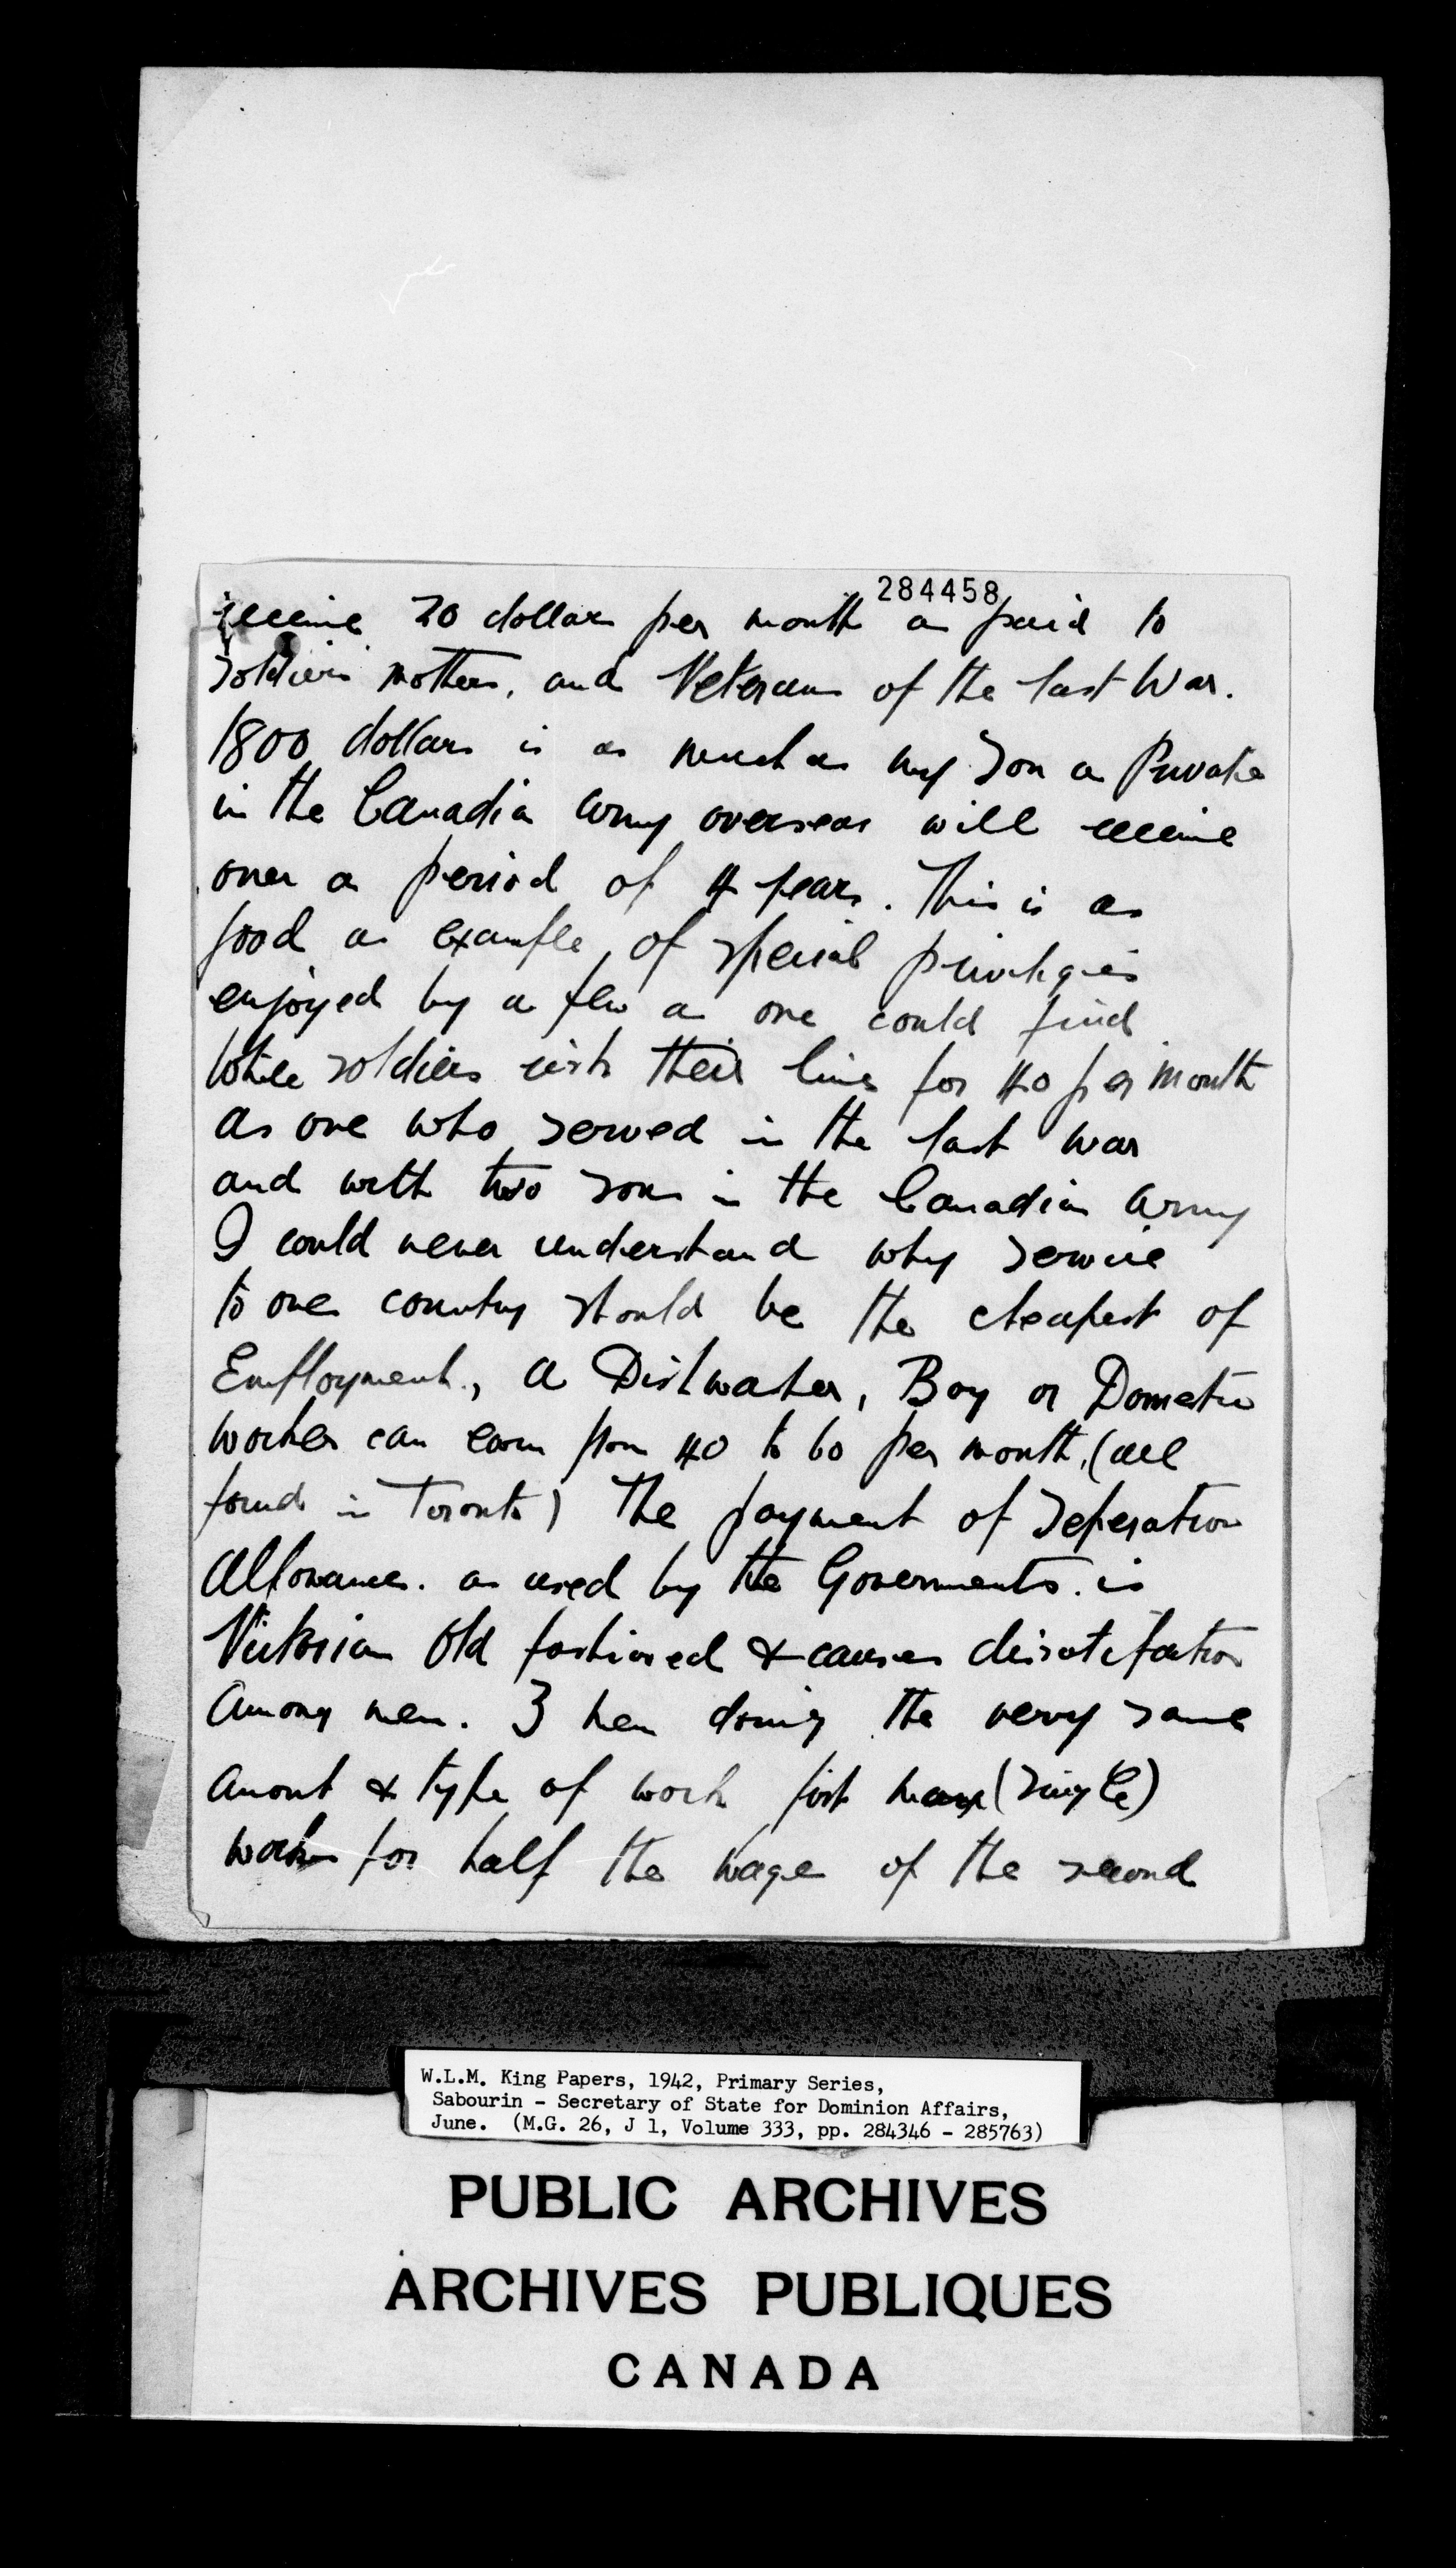 284458
receive 20 dollars per month as paid to
soldiers mothers, and Veterans of the last War.
1800 dollars is as much as my son a Private
in the Canadian army overseas will receive
over a period of 4 years. This is as
good as example of special privileges
enjoyed by a few as one could find
While soldiers risk their lives for 40 per month
As one who served in the last war
and with two sons in the Canadian Army
I could never understand why service
to ones country should be the cheapest of
Employment, A Dishwasher, Boy or Domestic
worker can earn from 40 to 60 per month, (all
found in Toronto) The payment of Seperation
Allowances. as used by the Governments. is
Victorian Old fashioned & causes disatisfaction
Among men. 3 men doing the very same
Amount & type of work first man (single)
works for half the wage of the second
W.L.M. King Papers, 1942, Primary Series,
Sabourin - Secretary of State for Dominion Affairs,
June. (M.G. 26, J 1, Volume 333, pp. 284346 - 285763)
PUBLIC ARCHIVES
ARCHIVES PUBLIQUES
CANADA